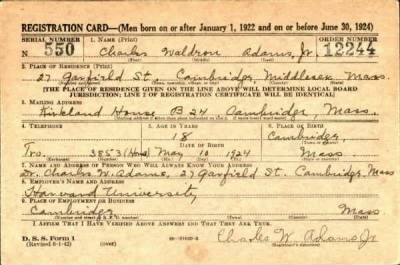 REGISTRATION CARD—(Men born on or after January 1, 1922 and on or before June 30, 1924)
SERIAL NUMBER 1. NAME (Print) ORDER NUMBER
N 550 Charles Waldron Adams, Jr. 12244
(First) (Middle) (Last)
2. PLACE OF RESIDENCE (Print)
27 Garfield St., Cambridge, Middlesex, Mass.
(Number and street) (Town, township, village, or city) (County) (State)
[THE PLACE OF RESIDENCE GIVEN ON THE LINE ABOVE WILL DETERMINE LOCAL BOARD
JURISDICTION; LINE 2 OF REGISTRATION CERTIFICATE WILL BE IDENTICAL]
3. MAILING ADDRESS
Kirkland House B 24 Cambridge, Mass.
4. TELEPHONE 5. AGE IN YEARS 6. PLACE OF BIRTH
18 Cambridge
DATE OF BIRTH
Tro. 3853 May 10 1924 Mass
(Exchange) (Number) (Mo.) (Day) (Yr.) (State or country)
7. NAME AND ADDRESS OF PERSON WHO WILL ALWAYS KNOW YOUR ADDRESS
Dr. Charles W. Adams, 27 Garfield St. Cambridge, Mass
8. EMPLOYER'S NAME AND ADDRESS
Harvard University
9. PLACE OF EMPLOYMENT OR BUSINESS
Cambridge Mass
(Number and street or R. F. D. number) (Town) (County) (State)
I AFFIRM THAT I HAVE VERIFIED ABOVE ANSWERS AND THAT THEY ARE TRUE.
D. S. S. Form 1
(Revised 6-1-42) Charles W. Adams Jr